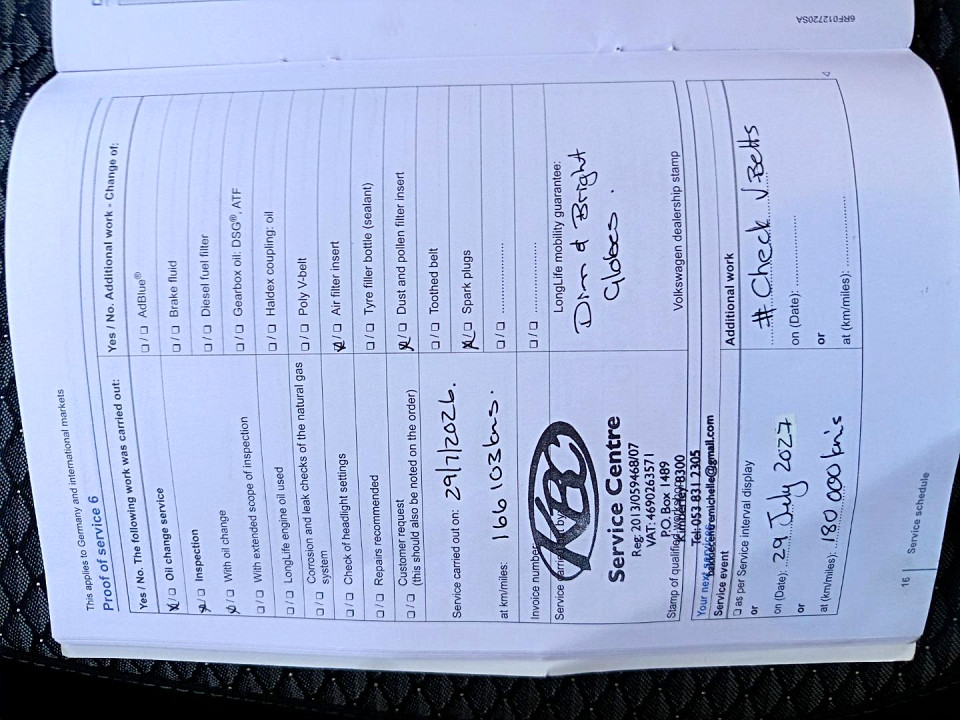 This applies to Germany and international markets
Proof of service 6
Yes / No. The following work was carried out:
☒ / ☐ Oil change service
☒ / ☐ Inspection
☒ / ☐ With oil change
☐ / ☐ With extended scope of inspection
☐ / ☐ LongLife engine oil used
☐ / ☐ Corrosion and leak checks of the natural gas
system
☐ / ☐ Check of headlight settings
☐ / ☐ Repairs recommended
☐ / ☐ Customer request
(this should also be noted on the order)
Service carried out on: 29/7/2026.
at km/miles: 166 103 kms.
Invoice number
Service carried out by
KBC
Service Centre
Reg: 2013/059468/07
VAT: 4690263571
P.O. Box 1489
Kimberley 8300
Tel: 053 831 2305
Stamp of qualified workshop
Yes / No. Additional work - Change of:
☐ / ☐ AdBlue®
☐ / ☐ Brake fluid
☐ / ☐ Diesel fuel filter
☐ / ☐ Gearbox oil: DSG®, ATF
☐ / ☐ Haldex coupling: oil
☐ / ☐ Poly V-belt
☒ / ☐ Air filter insert
☐ / ☐ Tyre filler bottle (sealant)
☒ / ☐ Dust and pollen filter insert
☐ / ☐ Toothed belt
☒ / ☐ Spark plugs
☐ / ☐ ..............
☐ / ☐ ..............
LongLife mobility guarantee:
Dim & Bright
Globes.
Volkswagen dealership stamp
Your next service:
Service event
☐ as per Service interval display
or
on (Date): 29 July 2027
or
at (km/miles): 180 000 km's
Additional work
# Check V-Belts
on (Date): ..............
or
at (km/miles): ..............
16 | Service schedule
6RF012720SA